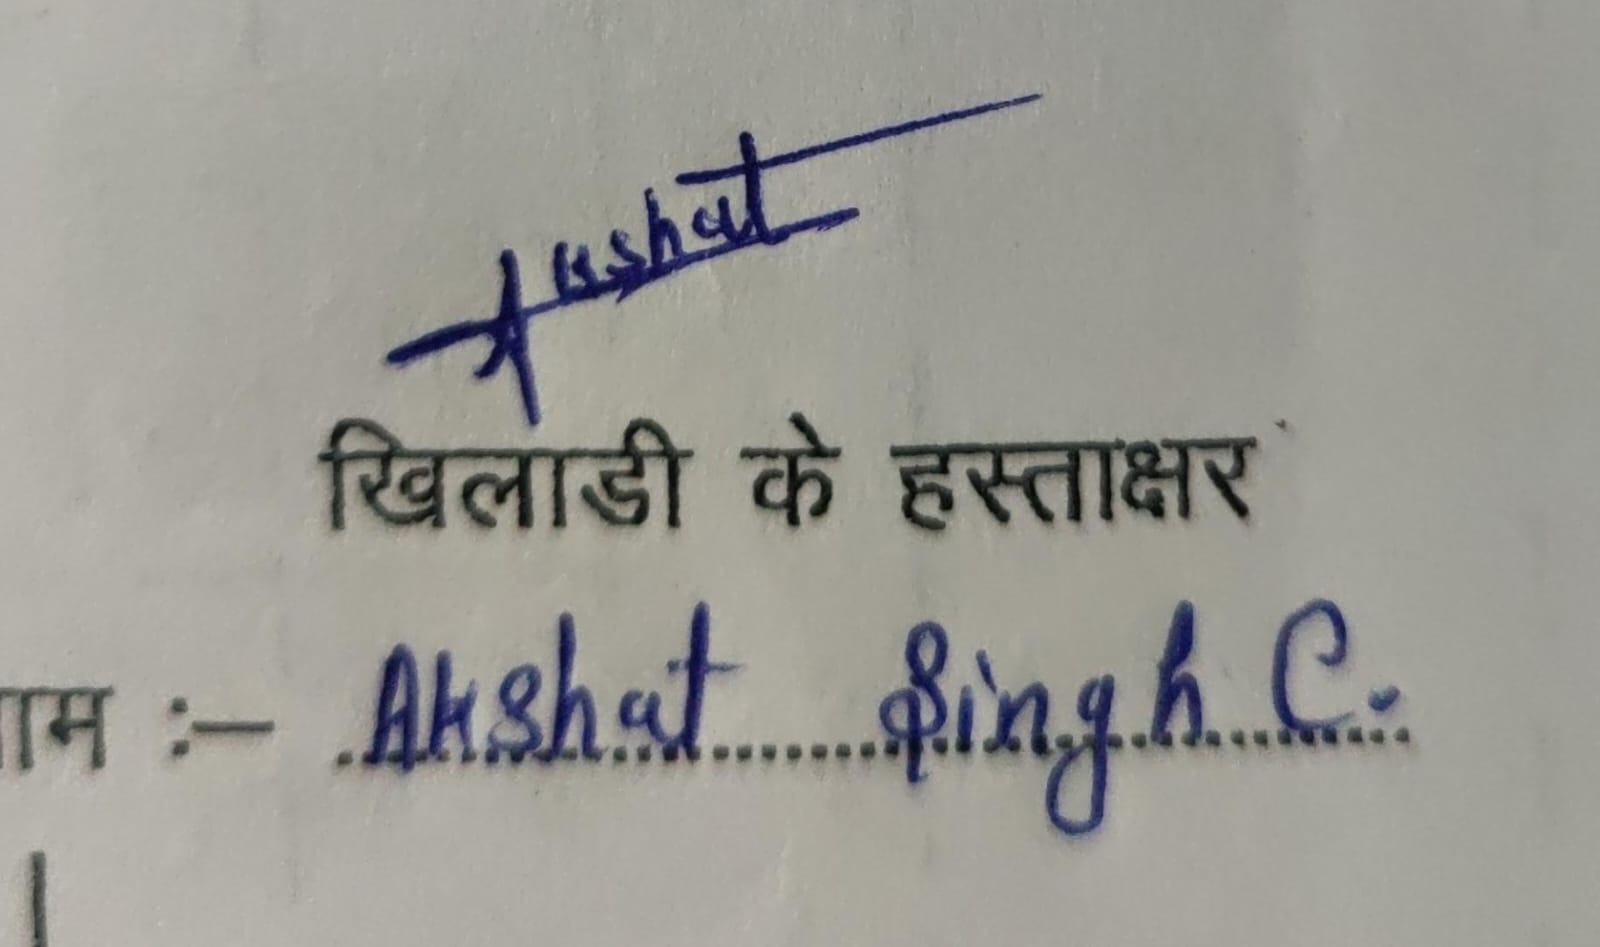 Akshat
खिलाडी के हस्ताक्षर
नाम :– Akshat Singh C.